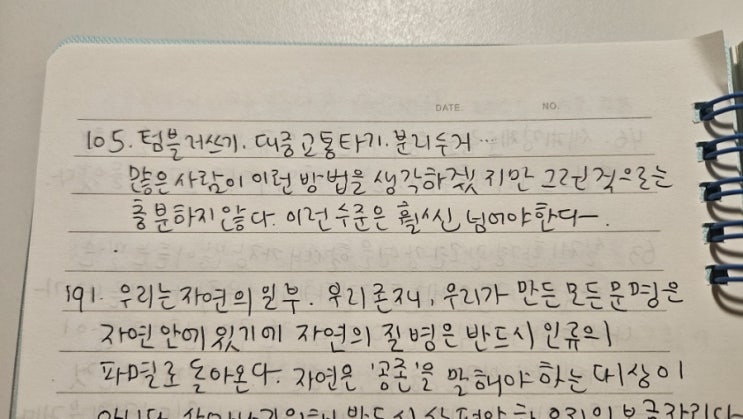 DATE. NO.
105. 텀블러쓰기. 대중교통타기. 분리수거...
많은 사람이 이런 방법을 생각하겠지만 그런 걸로는
충분하지 않다. 이런 수준은 훨씬 넘어야한다.
191. 우리는 자연의 일부. 우리 존재, 우리가 만든 모든 문명은
자연 안에 있기에 자연의 질병은 반드시 인류의
파멸로 돌아온다. 자연은 '공존'을 말해야 하는 대상이